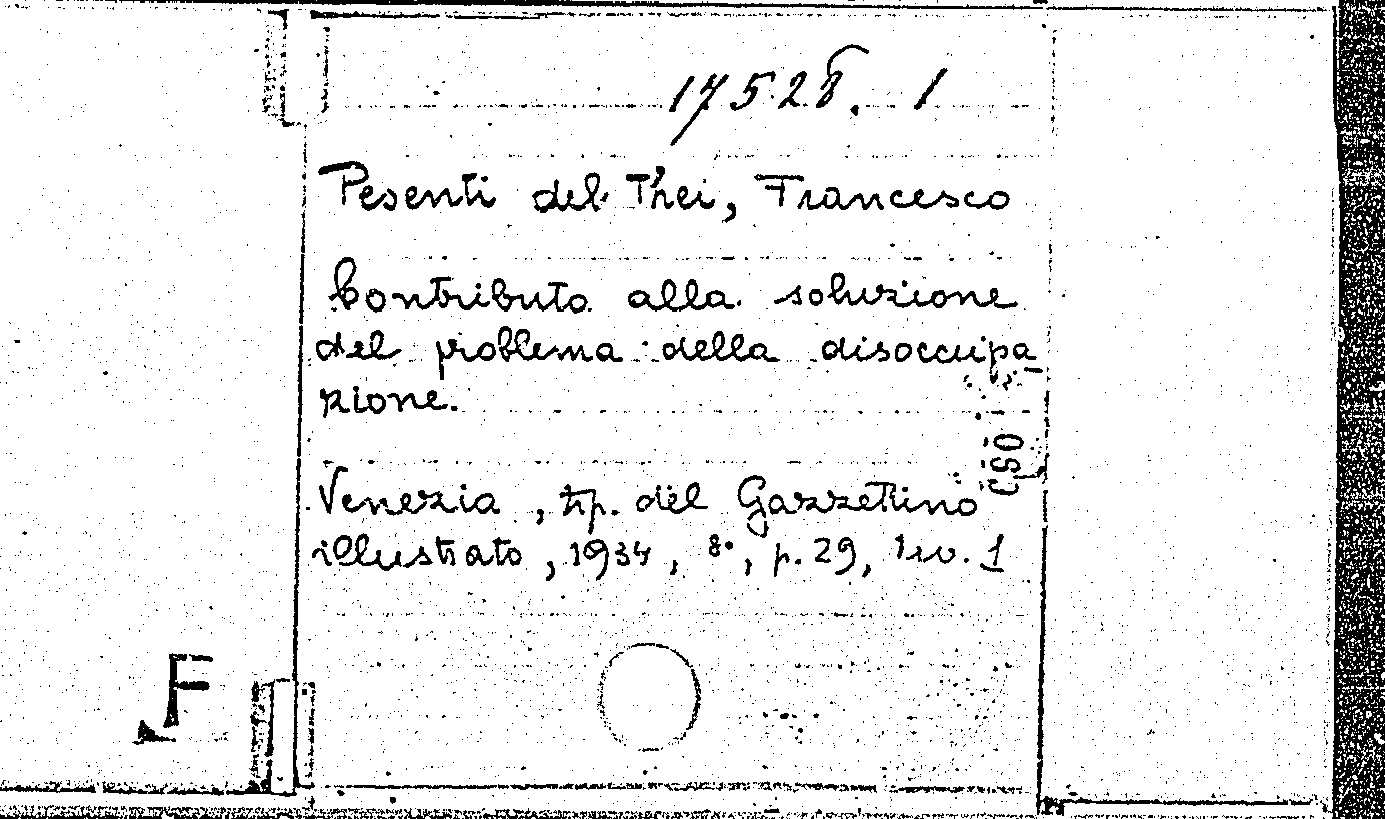 17528. 1
Pesenti del Thei, Francesco
Contributo alla soluzione
del problema della disoccupa
zione.
CSO
Venezia, tip. del Gazzettino
illustrato, 1934, 8°, p. 29, tav. 1
F